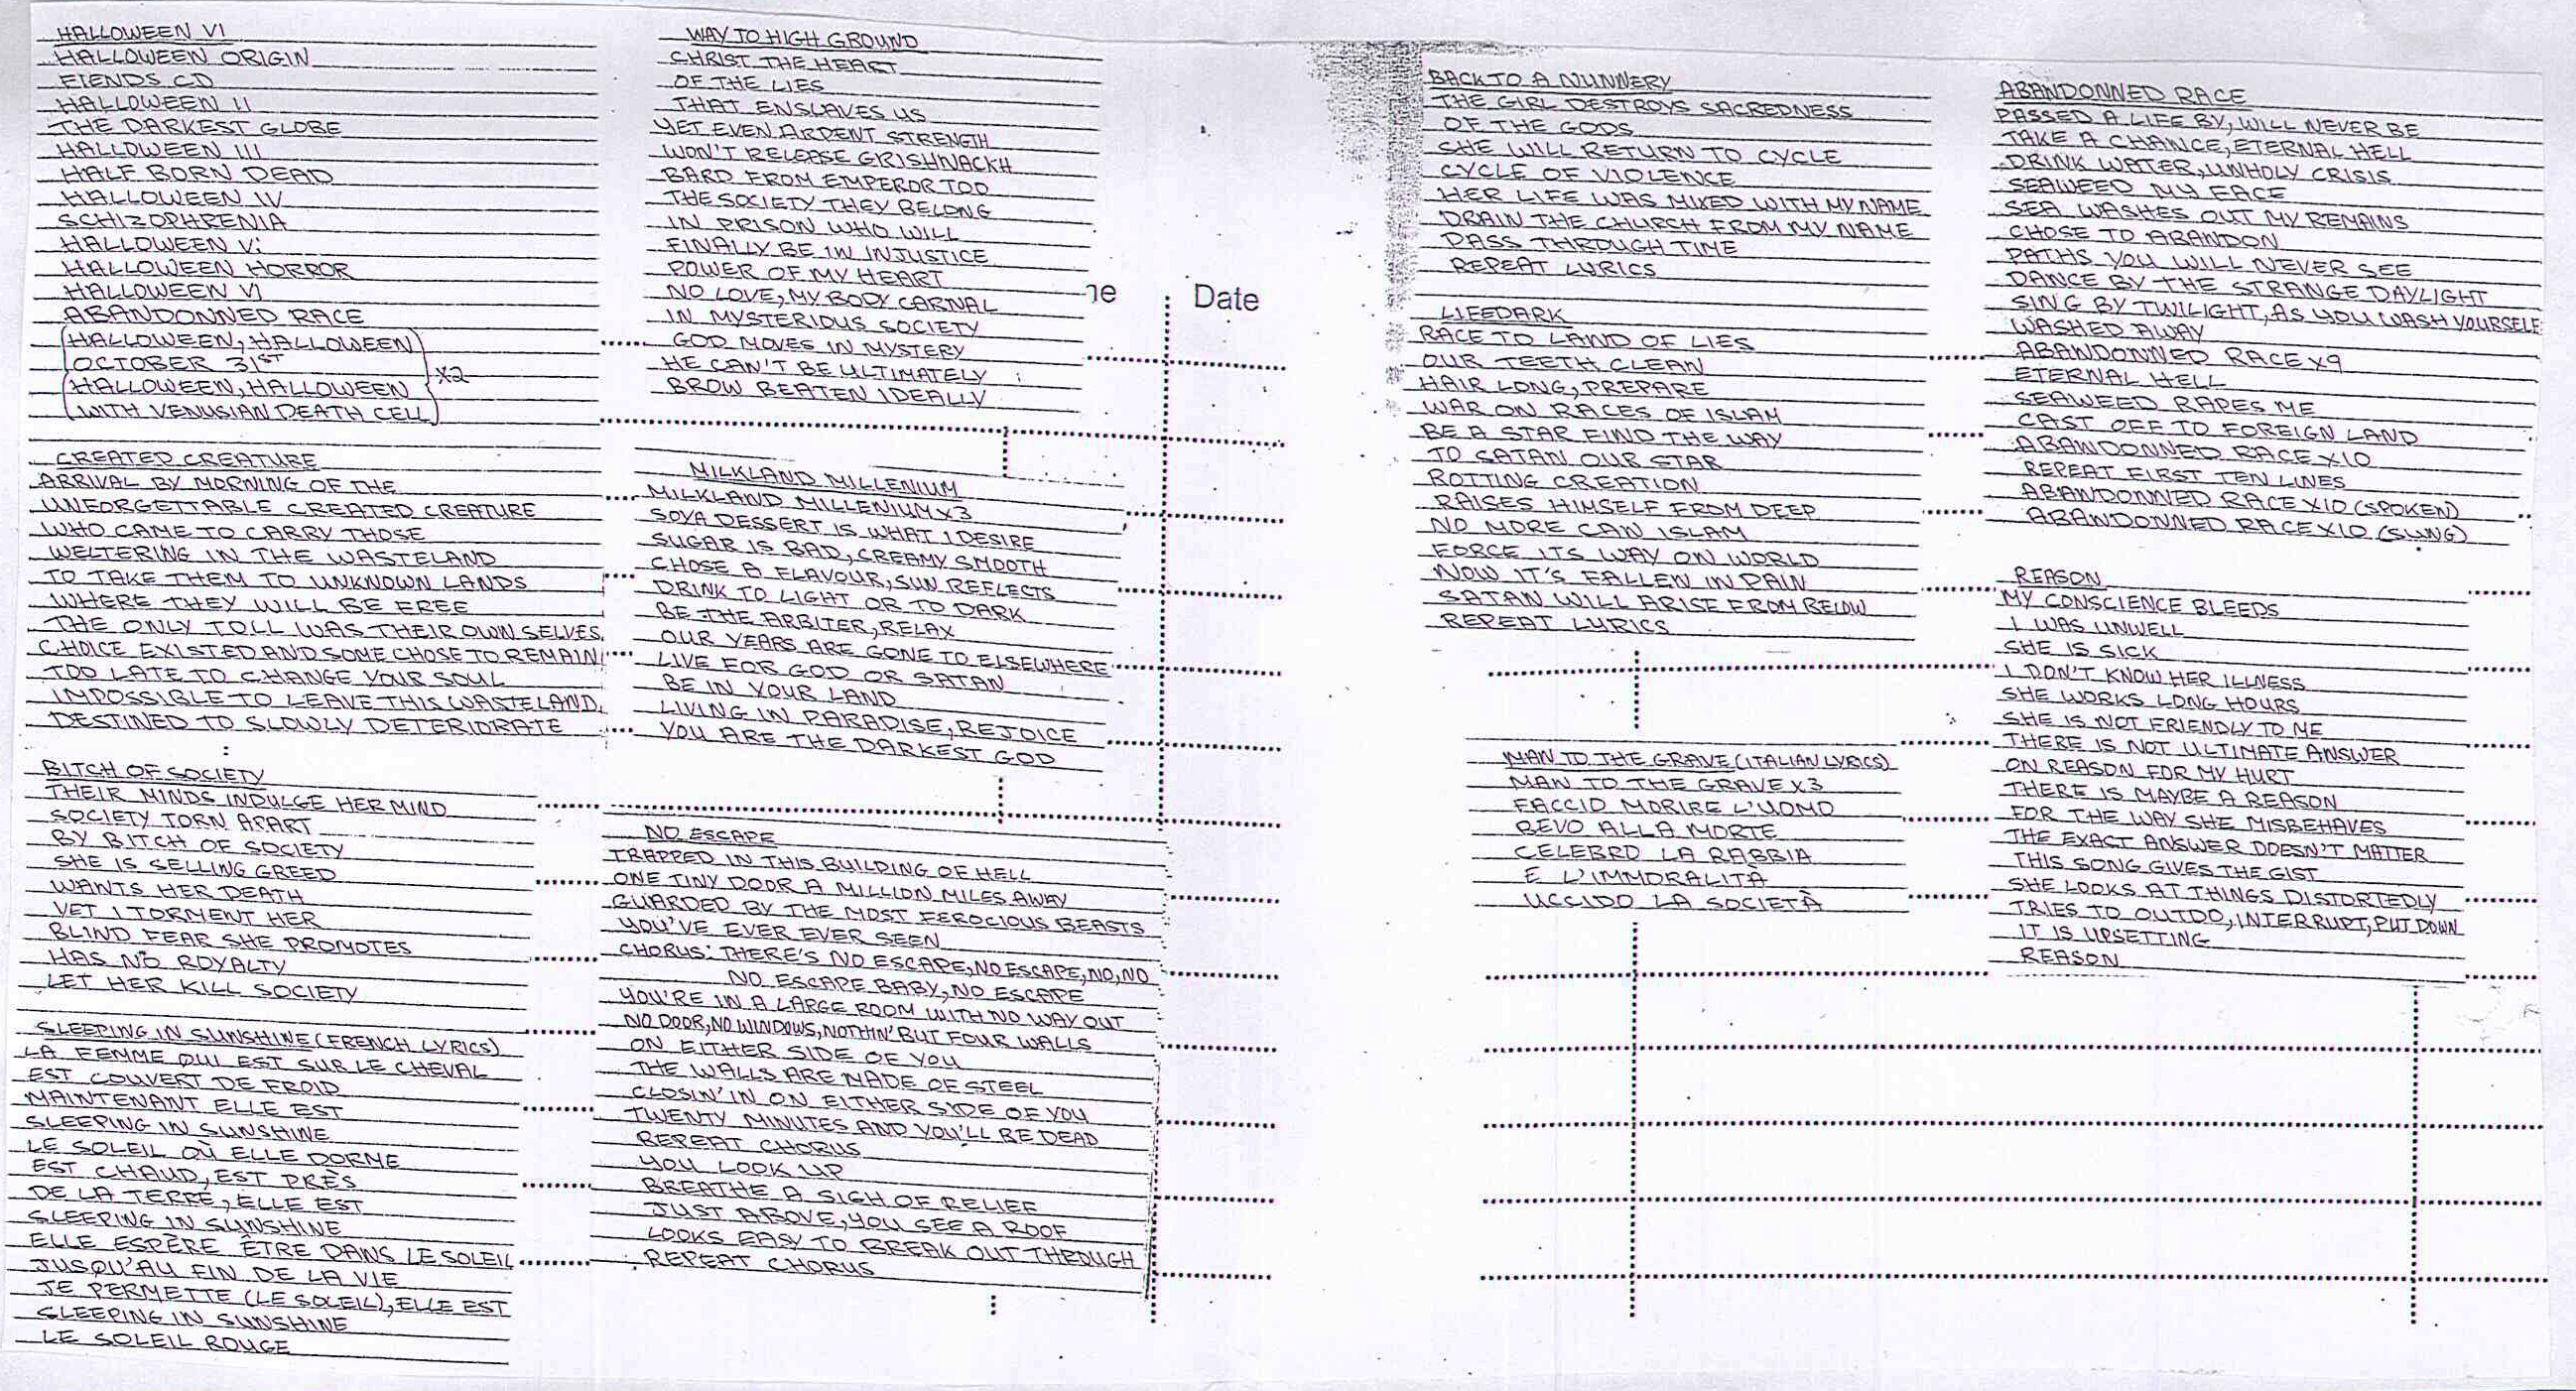 HALLOWEEN VI
HALLOWEEN ORIGIN
FIENDS CD
HALLOWEEN II
THE DARKEST GLOBE
HALLOWEEN III
HALF BORN DEAD
HALLOWEEN IV
SCHIZOPHRENIA
HALLOWEEN Vi
HALLOWEEN HORROR
HALLOWEEN VI
ABANDONNED RACE
(HALLOWEEN, HALLOWEEN)
OCTOBER 31ST
(HALLOWEEN, HALLOWEEN } X2
(WITH VENUSIAN DEATH CELL)
CREATED CREATURE
ARRIVAL BY MORNING OF THE
UNFORGETTABLE CREATED CREATURE
WHO CAME TO CARRY THOSE
WELTERING IN THE WASTELAND
TO TAKE THEM TO UNKNOWN LANDS
WHERE THEY WILL BE FREE
THE ONLY TOLL WAS THEIR OWN SELVES.
CHOICE EXISTED AND SOME CHOSE TO REMAIN
TOO LATE TO CHANGE YOUR SOUL
IMPOSSIBLE TO LEAVE THIS WASTELAND.
DESTINED TO SLOWLY DETERIORATE
BITCH OF SOCIETY
THEIR MINDS INDULGE HER MIND
SOCIETY TORN APART
BY BITCH OF SOCIETY
SHE IS SELLING GREED
WANTS HER DEATH
YET I TORMENT HER
BLIND FEAR SHE PROMOTES
HAS NO ROYALTY
LET HER KILL SOCIETY
SLEEPING IN SUNSHINE (FRENCH LYRICS)
LA FEMME QUI EST SUR LE CHEVAL
EST COUVERT DE FROID
MAINTENANT ELLE EST
SLEEPING IN SUNSHINE
LE SOLEIL OÙ ELLE DORME
EST CHAUD, EST PRÈS
DE LA TERRE, ELLE EST
SLEEPING IN SUNSHINE
ELLE ESPÈRE ÊTRE DANS LE SOLEIL
JUSQU'AU FIN DE LA VIE
JE PERMETTE (LE SOLEIL), ELLE EST
SLEEPING IN SUNSHINE
LE SOLEIL ROUGE
WAY TO HIGH GROUND
CHRIST THE HEART
OF THE LIES
THAT ENSLAVES US
YET EVEN ARDENT STRENGTH
WON'T RELEASE GRISHNACKH
BARD FROM EMPEROR TOO
THE SOCIETY THEY BELONG
IN PRISON WHO WILL
FINALLY BE IN INJUSTICE
POWER OF MY HEART
NO LOVE, MY BODY CARNAL
IN MYSTERIOUS SOCIETY
GOD MOVES IN MYSTERY
HE CAN'T BE ULTIMATELY
BROW BEATEN IDEALLY
MILKLAND MILLENIUM
MILKLAND MILLENIUM X3
SOYA DESSERT IS WHAT I DESIRE
SUGAR IS BAD, CREAMY SMOOTH
CHOSE A FLAVOUR, SUN REFLECTS
DRINK TO LIGHT OR TO DARK
BE THE ARBITER, RELAX
OUR YEARS ARE GONE TO ELSEWHERE
LIVE FOR GOD OR SATAN
BE IN YOUR LAND
LIVING IN PARADISE, REJOICE
YOU ARE THE DARKEST GOD
NO ESCAPE
TRAPPED IN THIS BUILDING OF HELL
ONE TINY DOOR A MILLION MILES AWAY
GUARDED BY THE MOST FEROCIOUS BEASTS
YOU'VE EVER EVER SEEN
CHORUS: THERE'S NO ESCAPE, NO ESCAPE, NO, NO
NO ESCAPE BABY, NO ESCAPE
YOU'RE IN A LARGE ROOM WITH NO WAY OUT
NO DOOR, NO WINDOWS, NOTHIN' BUT FOUR WALLS
ON EITHER SIDE OF YOU
THE WALLS ARE MADE OF STEEL
CLOSIN' IN ON EITHER SIDE OF YOU
TWENTY MINUTES AND YOU'LL BE DEAD
REPEAT CHORUS
YOU LOOK UP
BREATHE A SIGH OF RELIEF
JUST ABOVE, YOU SEE A ROOF
LOOKS EASY TO BREAK OUT THROUGH
REPEAT CHORUS
Date
BACK TO A NUNNERY
THE GIRL DESTROYS SACREDNESS
OF THE GODS
SHE WILL RETURN TO CYCLE
CYCLE OF VIOLENCE
HER LIFE WAS MIXED WITH MY NAME
DRAIN THE CHURCH FROM MY NAME
PASS THROUGH TIME
REPEAT LYRICS
LIFEDARK
RACE TO LAND OF LIES
OUR TEETH CLEAN
HAIR LONG, PREPARE
WAR ON RACES OF ISLAM
BE A STAR FIND THE WAY
TO SATAN OUR STAR
ROTTING CREATION
RAISES HIMSELF FROM DEEP
NO MORE CAN ISLAM
FORCE ITS WAY ON WORLD
NOW IT'S FALLEN IN PAIN
SATAN WILL ARISE FROM BELOW
REPEAT LYRICS
MAN TO THE GRAVE (ITALIAN LYRICS)
MAN TO THE GRAVE X3
FACCIO MORIRE L'UOMO
BEVO ALLA MORTE
CELEBRO LA RABBIA
E L'IMMORALITÀ
UCCIDO LA SOCIETÀ
ABANDONNED RACE
PASSED A LIFE BY, WILL NEVER BE
TAKE A CHANCE, ETERNAL HELL
DRINK WATER, UNHOLY CRISIS
SEAWEED MY FACE
SEA WASHES OUT MY REMAINS
CHOSE TO ABANDON
PATHS YOU WILL NEVER SEE
DANCE BY THE STRANGE DAYLIGHT
SING BY TWILIGHT, AS YOU WASH YOURSELF
WASHED AWAY
ABANDONNED RACE X9
ETERNAL HELL
SEAWEED RAPES ME
CAST OFF TO FOREIGN LAND
ABANDONNED RACE X10
REPEAT FIRST TEN LINES
ABANDONNED RACE X10 (SPOKEN)
ABANDONNED RACE X10 (SUNG)
REASON
MY CONSCIENCE BLEEDS
I WAS UNWELL
SHE IS SICK
I DON'T KNOW HER ILLNESS
SHE WORKS LONG HOURS
SHE IS NOT FRIENDLY TO ME
THERE IS NOT ULTIMATE ANSWER
ON REASON FOR MY HURT
THERE IS MAYBE A REASON
FOR THE WAY SHE MISBEHAVES
THE EXACT ANSWER DOESN'T MATTER
THIS SONG GIVES THE GIST
SHE LOOKS AT THINGS DISTORTEDLY
TRIES TO OUTDO, INTERRUPT, PUT DOWN
IT IS UPSETTING
REASON